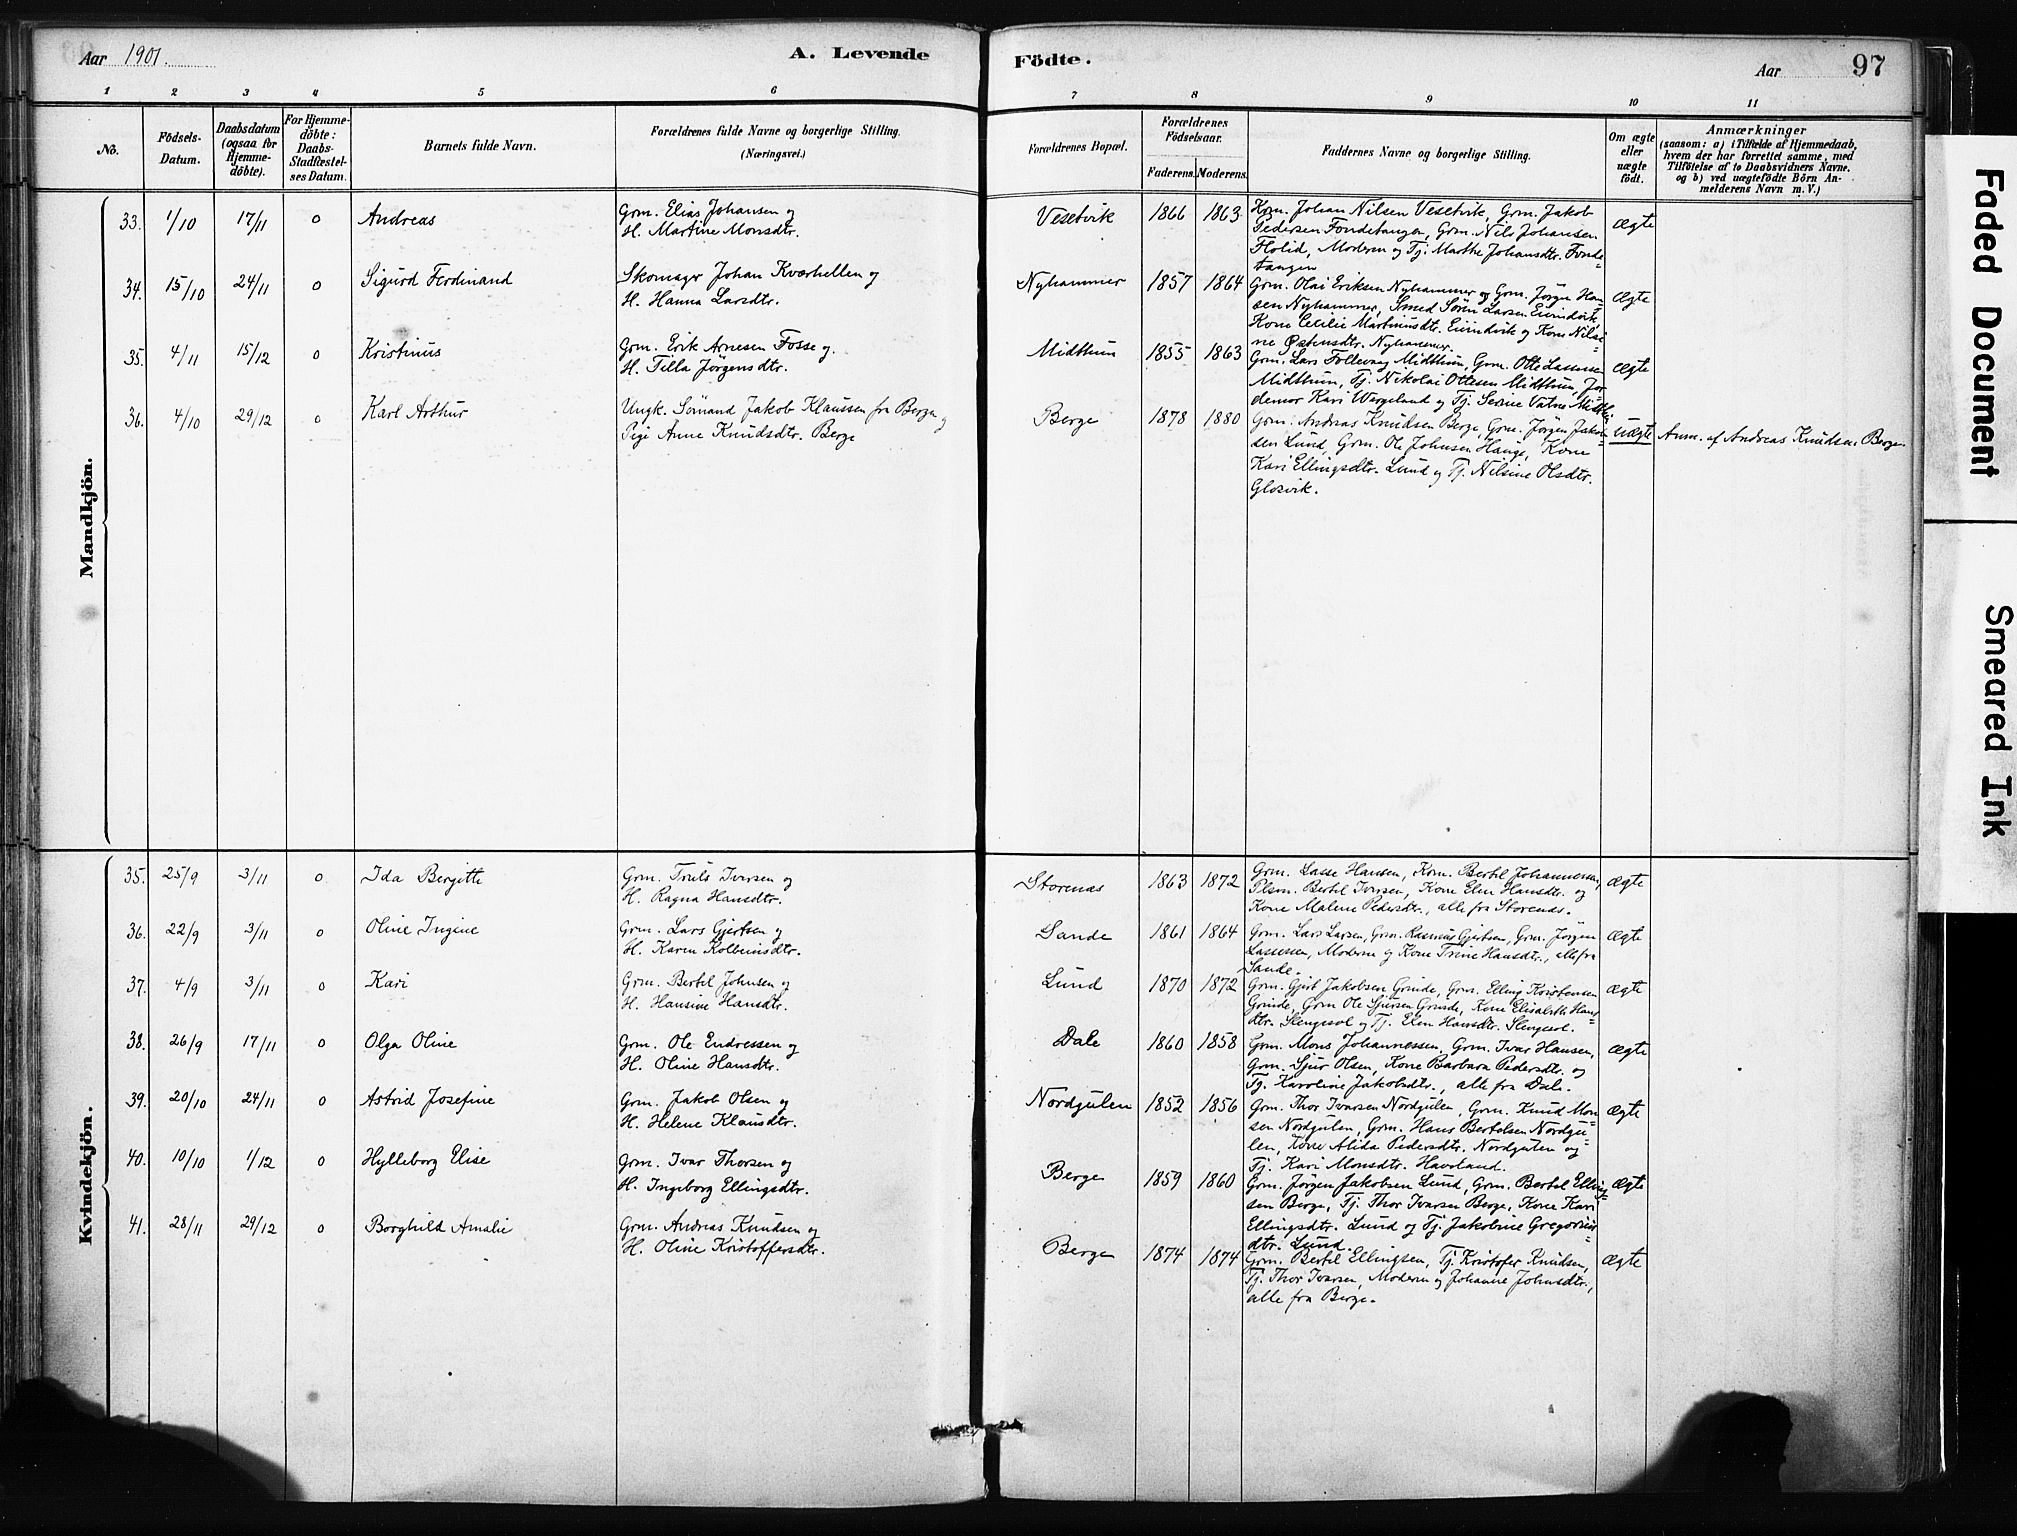 Aar 1901.
A. Levende
Födte.
Aar
97
1 2 3 4 5 6 7 8 9 10 11
No.
Födsels-
Datum.
Daabsdatum
(ogsaa for
Hjemme-
döbte).
For Hjemme-
döbte:
Daabs-
Stadfæstel-
ses Datum.
Barnets fulde Navn.
Forældrenes fulde Navne og borgerlige Stilling.
(Næringsvei.)
Forældrenes Bopæl.
Forældrenes
Födselsaar.
Faderens. Moderens.
Faddernes Navne og borgerlige Stilling.
Om ægte
eller
uægte
födt.
Anmærkninger
(saasom: a) i Tilfælde af Hjemmedaab,
hvem der har forrettet samme, med
Tilföielse af to Daabsvidners Navne.
og b) ved uægtefödte Börn An-
melderens Navn m. V.)
Mandkjön.
33. 1/10 17/11 0 Andreas
Grm. Elias Johansen og
H. Martine Monsdtr.
Vesetvik 1866 1863
Krm. Johan Nilsen Vesetvik, Grm. Jakob
Pedersen Fondetangen, Grm. Nils Johansen
Flolid, Moderen og Tj. Marthe Johansdtr. Fonde-
tangen
Ægte
34. 15/10 24/11 0 Sigurd Ferdinand
Skomager Johan Kværhellen og
H. Hanna Larsdtr.
Nyhammer 1857 1864
Grm. Olai Eriksen Nyhammer og Grm. Jörgen Han-
sen Nyhammer, Smed Sören Larsen Eivindvik
Kone Cecilie Martinusdtr. Eivindvik og Kone Nilsi-
ne Østensdtr. Nyhammer.
Ægte
35. 4/11 15/12 0 Kristinus
Grm. Erik Arnesen Fosse og
H. Tilla Jörgensdtr.
Midthun 1855 1863
Grm. Lars Follevaag Midthun, Grm. Otte Lassesen
Midthun, Tj. Nikolai Ottesen Midthun, Jor-
demor Kari Wergeland og Tj. Serine Vatne Midth.
Ægte
36. 4/10 29/12 0 Karl Arthur
Ungk. Sömand Jakob Klaussen fra Bergen og
Pige Anne Knudsdtr. Berge
Berge 1878 1880
Grm. Andreas Knudsen Berge, Grm. Jörgen Jakob-
sen Lund, Grm. Ole Johnsen Hauge, Kone
Kari Ellingsdtr. Lund og Tj. Nilsine Olsdtr.
Glosvik.
Uægte
Anm. af Andreas Knudsen Berge
Kvindekjön.
35. 25/9 3/11 0 Ida Bergitte
Grm. Truls Iversen og
H. Ragna Hansdtr.
Storenas 1863 1872
Grm. Lasse Hansen, Krm. Bertel Johannessen,
Plsm. Bertel Iversen, Kone Elen Hansdtr. og
Kone Malene Pedersdtr., alle fra Storenas.
Ægte
36. 22/9 3/11 0 Oline Ingine
Grm. Lars Gjertsen og
H. Karen Kolbeinsdtr.
Sande 1861 1864
Grm. Lars Larsen, Grm. Rasmus Gjertsen, Grm. Jörgen
Lassesen, Moderen og Kone Trine Hansdtr., alle fra
Sande.
Ægte
37. 4/9 3/11 0 Kari
Grm. Bertel Johnsen og
H. Hansine Hansdtr.
Lund 1870 1872
Grm. Gjert Jakobsen Grinde, Grm. Elling Kristensen
Grinde, Grm Ole Sjursen Grinde, Kone Elisabeth Hans-
dtr. Slengesol og Tj. Elen Hansdtr. Slengesol.
Ægte
38. 26/9 17/11 0 Olga Oline
Grm. Ole Endressen og
H. Oline Hansdtr.
Dale 1860 1858
Grm. Mons Johannessen, Grm. Ivar Hansen,
Grm. Sjur Olsen, Kone Barbara Pedersdtr. og
Tj. Karoline Jakobsdtr., alle fra Dale.
Ægte
39. 20/10 24/11 0 Astrid Josefine
Grm. Jakob Olsen og
H. Helene Klausdtr.
Nordgulen 1852 1856
Grm. Thor Ivarsen Nordgulen, Grm. Knud Mon-
sen Nordgulen, Grm. Hans Bertelsen Nordgu-
len, Kone Alida Pedersdtr. Nordgulen og
Tj. Kari Monsdtr. Haveland.
Ægte
40. 10/10 1/12 0 Hylleborg Elise
Grm. Ivar Thorsen og
H. Ingeborg Ellingsdtr.
Berge 1859 1860
Grm. Jörgen Jakobsen Lund, Grm. Bertel Elling-
sen Berge, Tj. Thor Ivarsen Berge, Kone Kari
Ellingsdtr. Lund og Tj. Jakobine Gregorius-
dtr. Lund.
Ægte
41. 28/11 29/12 0 Borghild Amalie
Grm. Andreas Knudsen og
H. Oline Kristoffersdtr.
Berge 1874 1874
Grm. Bertel Ellingsen, Tj. Kristofer Knudsen,
Tj. Thor Ivarsen, Moderen og Johanne Johnsdtr.,
alle fra Berge.
Ægte
Faded Document
Smeared Ink